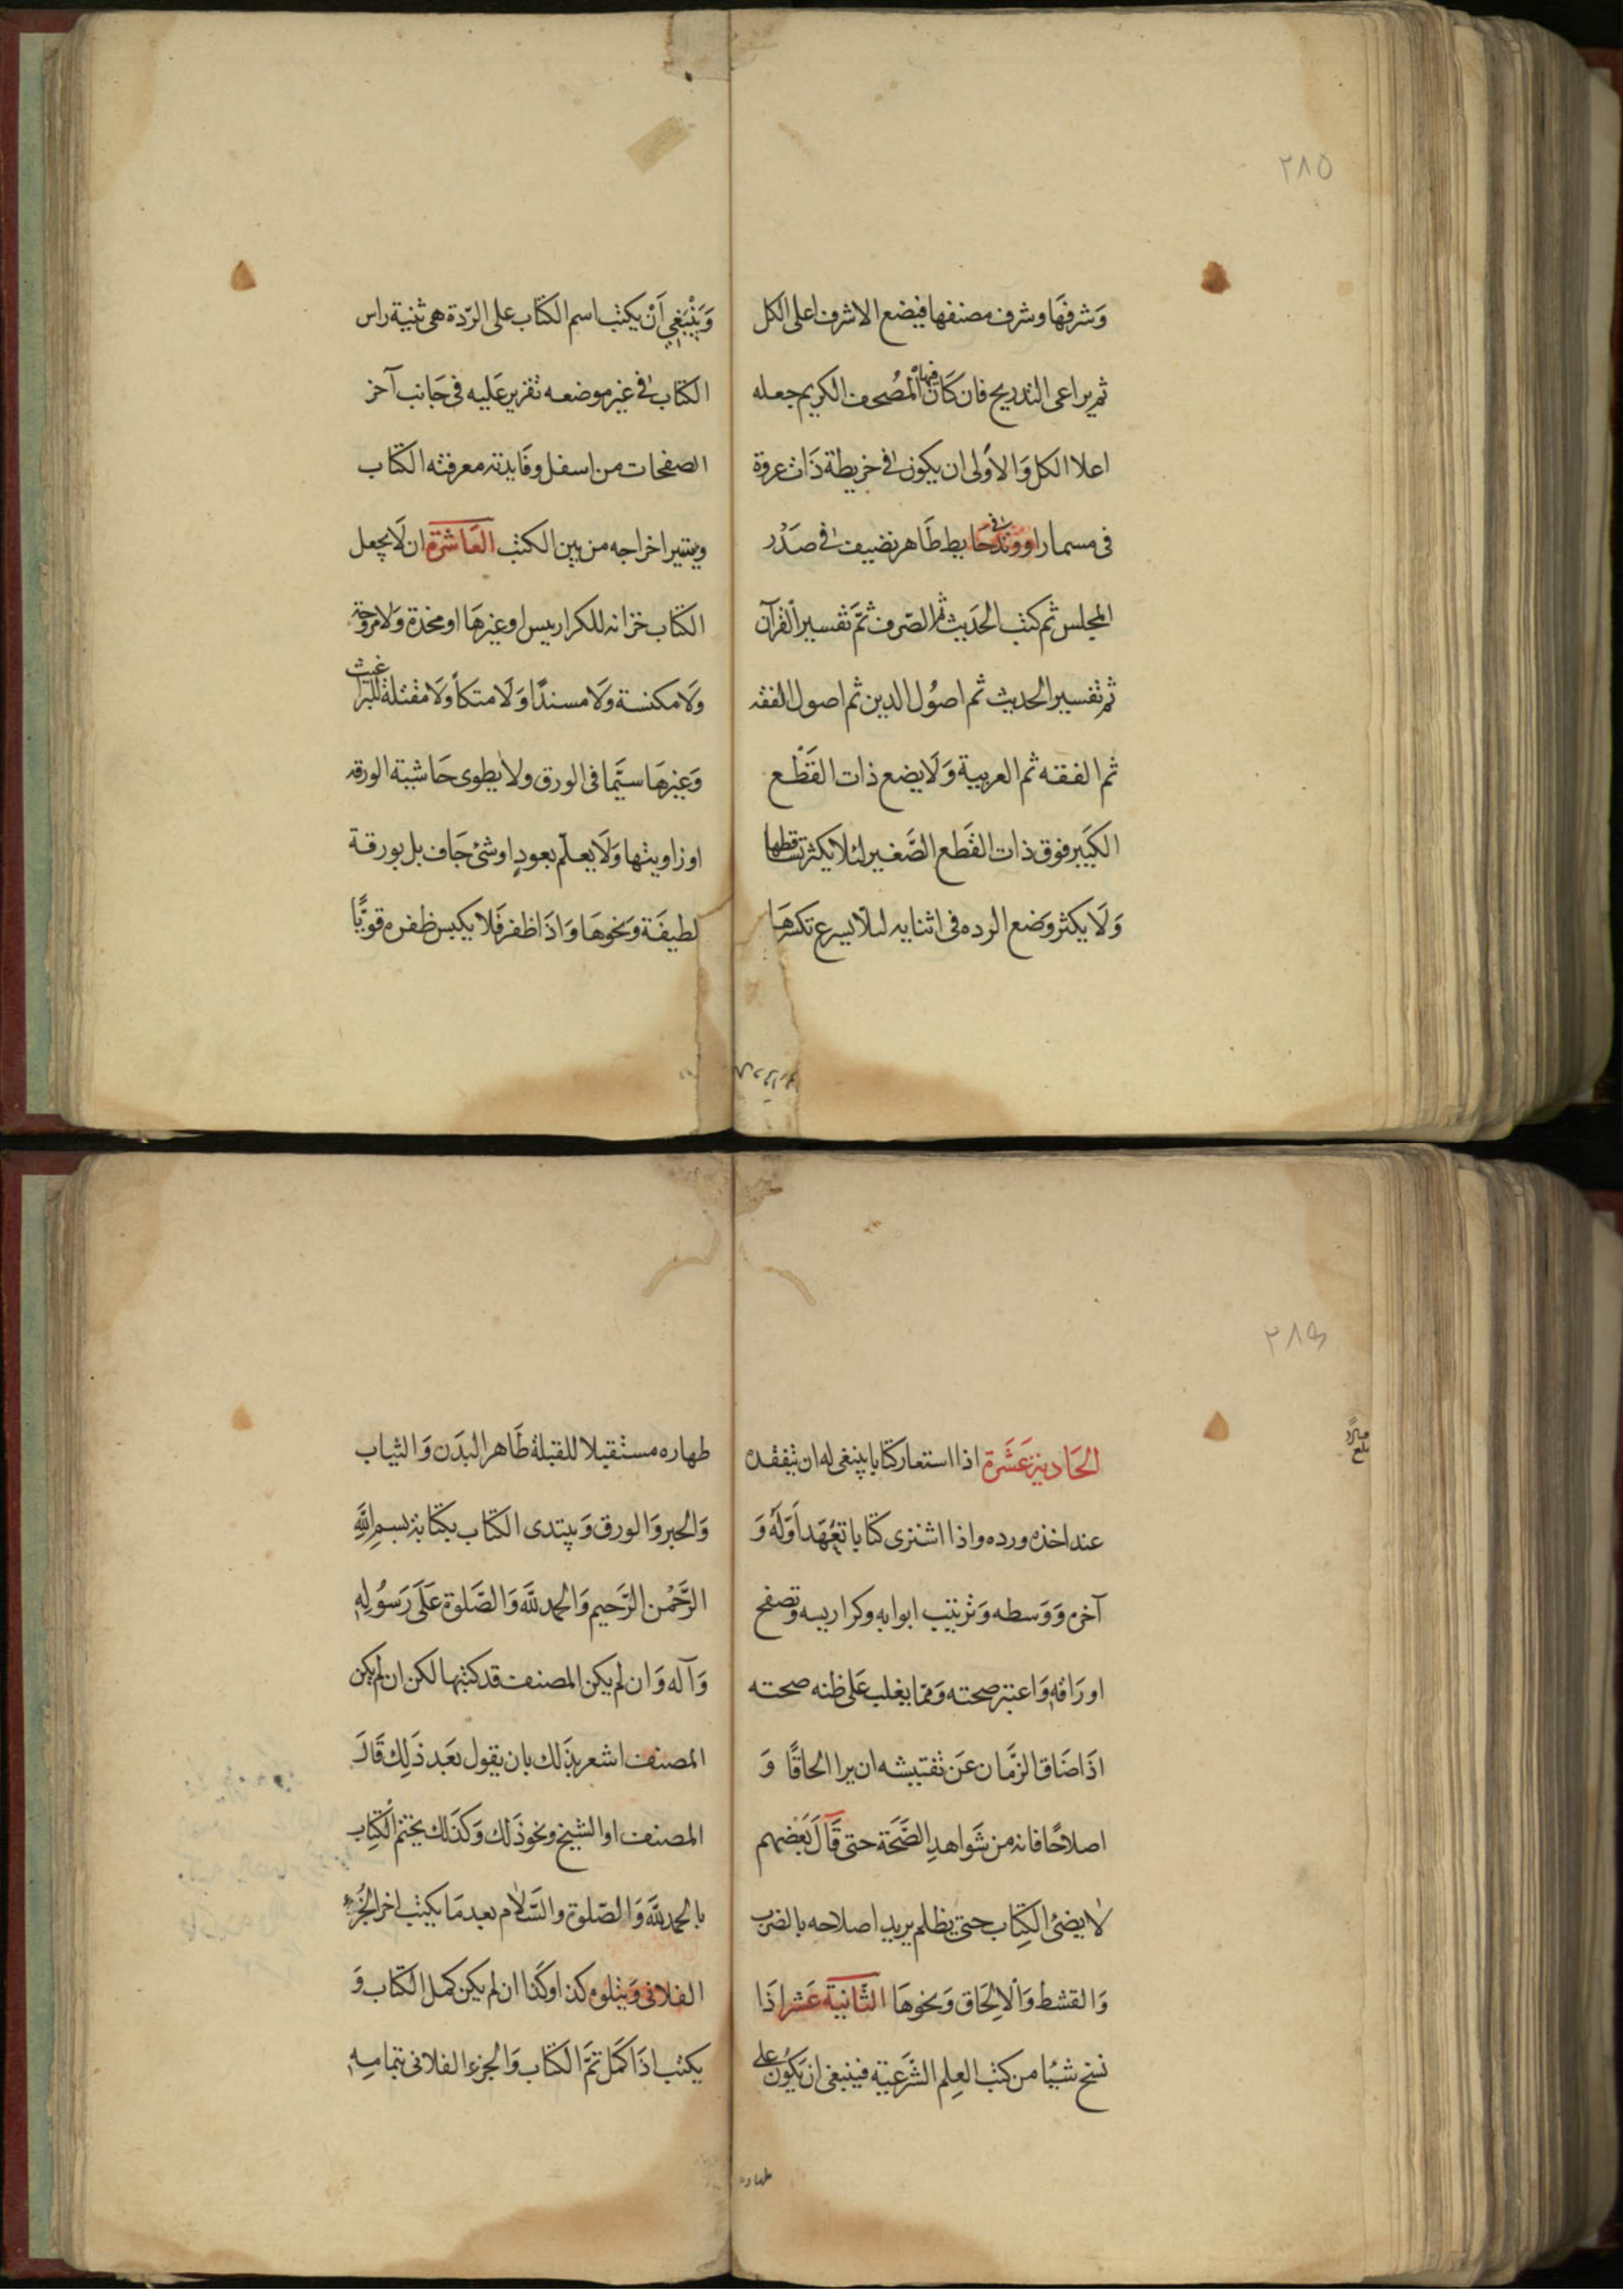 ٢٨٥
وَشرفَهَا وشرف مصنفها فيضع الاشرف اعلى الكل
ثم يراعى التدريج فان كَانَ فيها المُصحف الكريم جعله
اعلا الكل وَالاَولى ان يكون فى خريطة ذَات عروة
فى مسمار اووتد فى حَايط طَاهر نضيف فى صَدْر
المجلس ثم كتب الحَديث ثم الصّرف ثمّ تفسير القرآن
ثم تفسير الحديث ثم اصُول الدين ثم اصول الفقه
ثم الفقه ثم العربية وَلَا يضع ذات القَطْع
الكَبير فوق ذات القَطع الصَّغير لئلا يكثر تساقطها
وَلَا يكثر وَضع الرده فى اثنايه لئلا يسرع تكسرهَا
وَيَنْبَغِي اَنْ يكتب اسم الكتاب على الرّدة هى ثنية راس
الكتاب فى غير موضعه تقرير عَليه فى جَانب آخر
الصفحات من اسفل وفَايدته معرفته الكتاب
ويتير اخراجه من بين الكتب العَاشرة ان لَا يجعل
الكتاب خزانه للكراريس او غيرهَا او مخدة وَلا مروحة
وَلَا مكنسة وَلَا مسندًا وَلَا متكأ وَلَا مقتلة للبراغيث
وَغيرهَا سيَّما فى الورق ولا يطوى حَاشية الورقه
او زاويتها وَلَا يعلّم بعودٍ او شئ جَاف بل بورقة
لطيفَة ونحوهَا وَاذَا ظفر فَلا يكبس ظفره قويًّا
٢٨٦
الحَادية عَشَرة اذا استعار كتابا ينبغى له ان يتفقده
عند اخذه ورده واذا اشترى كتابا تعُهَد اَوّلَهُ وَ
آخره وَوَسطه وَترتيب ابوابه وكراريسه وتصفح
اورَاقهِ وَاعتبر صحته وَمما يغلب عَلى ظنه صحته
اذَا ضَاق الزَّمان عَن تفتيشه ان يرا الحاقًا وَ
اصلاحًا فانه من شَواهدِ الصَّحَة حتى قَالَ بَعْضهم
لا يضئ الكِتِاب حتى يظلم يريد اصلاحه بالضرب
وَالقشط وَالاِلحَاق وَنحوهَا الثّانية عَشر اذَا
نسخ شيئا من كتب العِلم الشَّرعيّة فينبغى ان يَكُون على
طهاره
طهاره مستقبلا للقبلة طَاهر البدَن وَالثياب
وَالحبر وَالورق وَيبتدى الكتاب بكتابة بسم اللَّهِ
الرَّحْمن الرَّحيم وَالحمد للَّه وَالصَّلوة عَلَى رَسُولِهِ
وَآله وَان لم يكن المصنف قد كتبها لكن ان لم يكن
المصنف اشعر بذَلك بان يقول بَعَد ذَلِك قَالَ
المصنف او الشيخ ونحو ذَلك وَكذَلك يختم الْكتِاب
بالحمد للَّه وَالصّلوة والسَّلام بعد مَا يكتب اخر الجُزء
الفلانى وَيتلوه كذا وكَذا ان لم يكن كمل الكتاب وَ
يكتب اذَا كمَل تمَّ الكتاب وَالجزء الفلانى بتمامِهِ